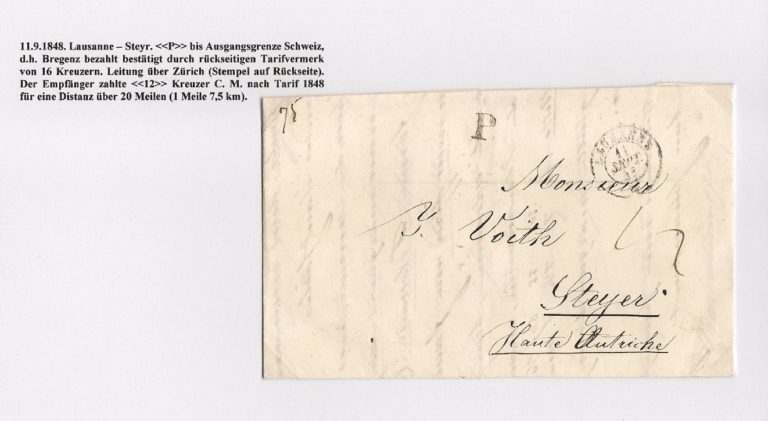 11.9.1848. Lausanne – Steyr. <<P>> bis Ausgangsgrenze Schweiz,
d.h. Bregenz bezahlt bestätigt durch rückseitigen Tarifvermerk
von 16 Kreuzern. Leitung über Zürich (Stempel auf Rückseite).
Der Empfänger zahlte <<12>> Kreuzer C. M. nach Tarif 1848
für eine Distanz über 20 Meilen (1 Meile 7,5 km).
75
P
LAUSANNE
11
SEPT.
Monsieur
J. Voith
12
Steyer
Haute Autriche